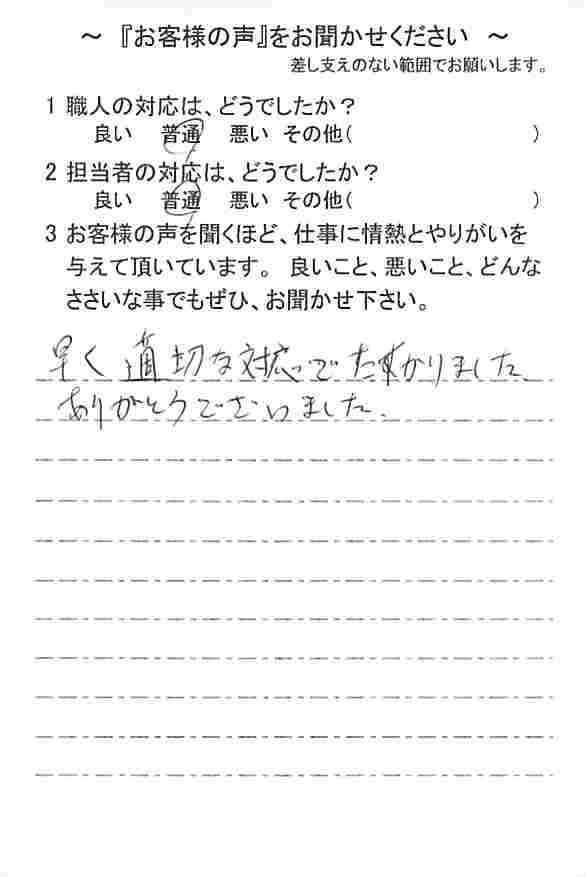 ～ 『お客様の声』をお聞かせください ～
差し支えのない範囲でお願いします。
1 職人の対応は、どうでしたか？
良い 普通 悪い その他( )
2 担当者の対応は、どうでしたか？
良い 普通 悪い その他( )
3 お客様の声を聞くほど、仕事に情熱とやりがいを
与えて頂いています。 良いこと、悪いこと、どんな
ささいな事でもぜひ、お聞かせ下さい。
早く適切な対応でたすかりました。
ありがとうございました。